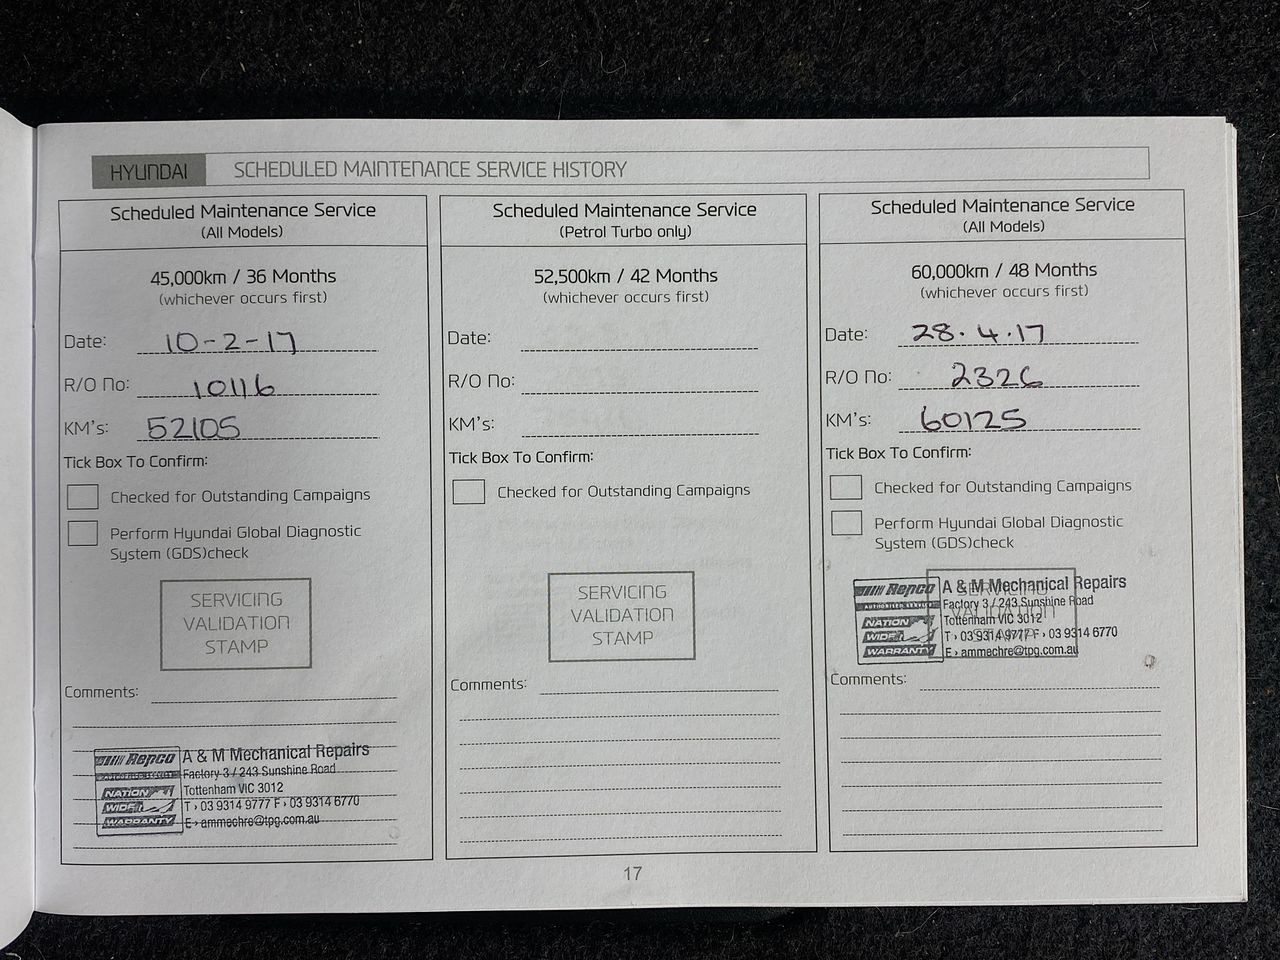 HYUNDAI SCHEDULED MAINTENANCE SERVICE HISTORY
Scheduled Maintenance Service
(All Models)
45,000km / 36 Months
(whichever occurs first)
Date: 10-2-17
R/O No: 10116
KM's: 52105
Tick Box To Confirm:
Checked for Outstanding Campaigns
Perform Hyundai Global Diagnostic
System (GDS)check
SERVICING
VALIDATION
STAMP
Comments:
Repco
AUTHORISED SERVICE
NATION
WIDE
WARRANTY
A & M Mechanical Repairs
Factory 3 / 243 Sunshine Road
Tottenham VIC 3012
T › 03 9314 9777 F › 03 9314 6770
E › ammechre@tpg.com.au
Scheduled Maintenance Service
(Petrol Turbo only)
52,500km / 42 Months
(whichever occurs first)
Date:
R/O No:
KM's:
Tick Box To Confirm:
Checked for Outstanding Campaigns
SERVICING
VALIDATION
STAMP
Comments:
Scheduled Maintenance Service
(All Models)
60,000km / 48 Months
(whichever occurs first)
Date: 28.4.17
R/O No: 2326
KM's: 60125
Tick Box To Confirm:
Checked for Outstanding Campaigns
Perform Hyundai Global Diagnostic
System (GDS)check
SERVICING
VALIDATION
STAMP
Repco
AUTHORISED SERVICE
NATION
WIDE
WARRANTY
A & M Mechanical Repairs
Factory 3 / 243 Sunshine Road
Tottenham VIC 3012
T › 03 9314 9777 F › 03 9314 6770
E › ammechre@tpg.com.au
Comments:
17